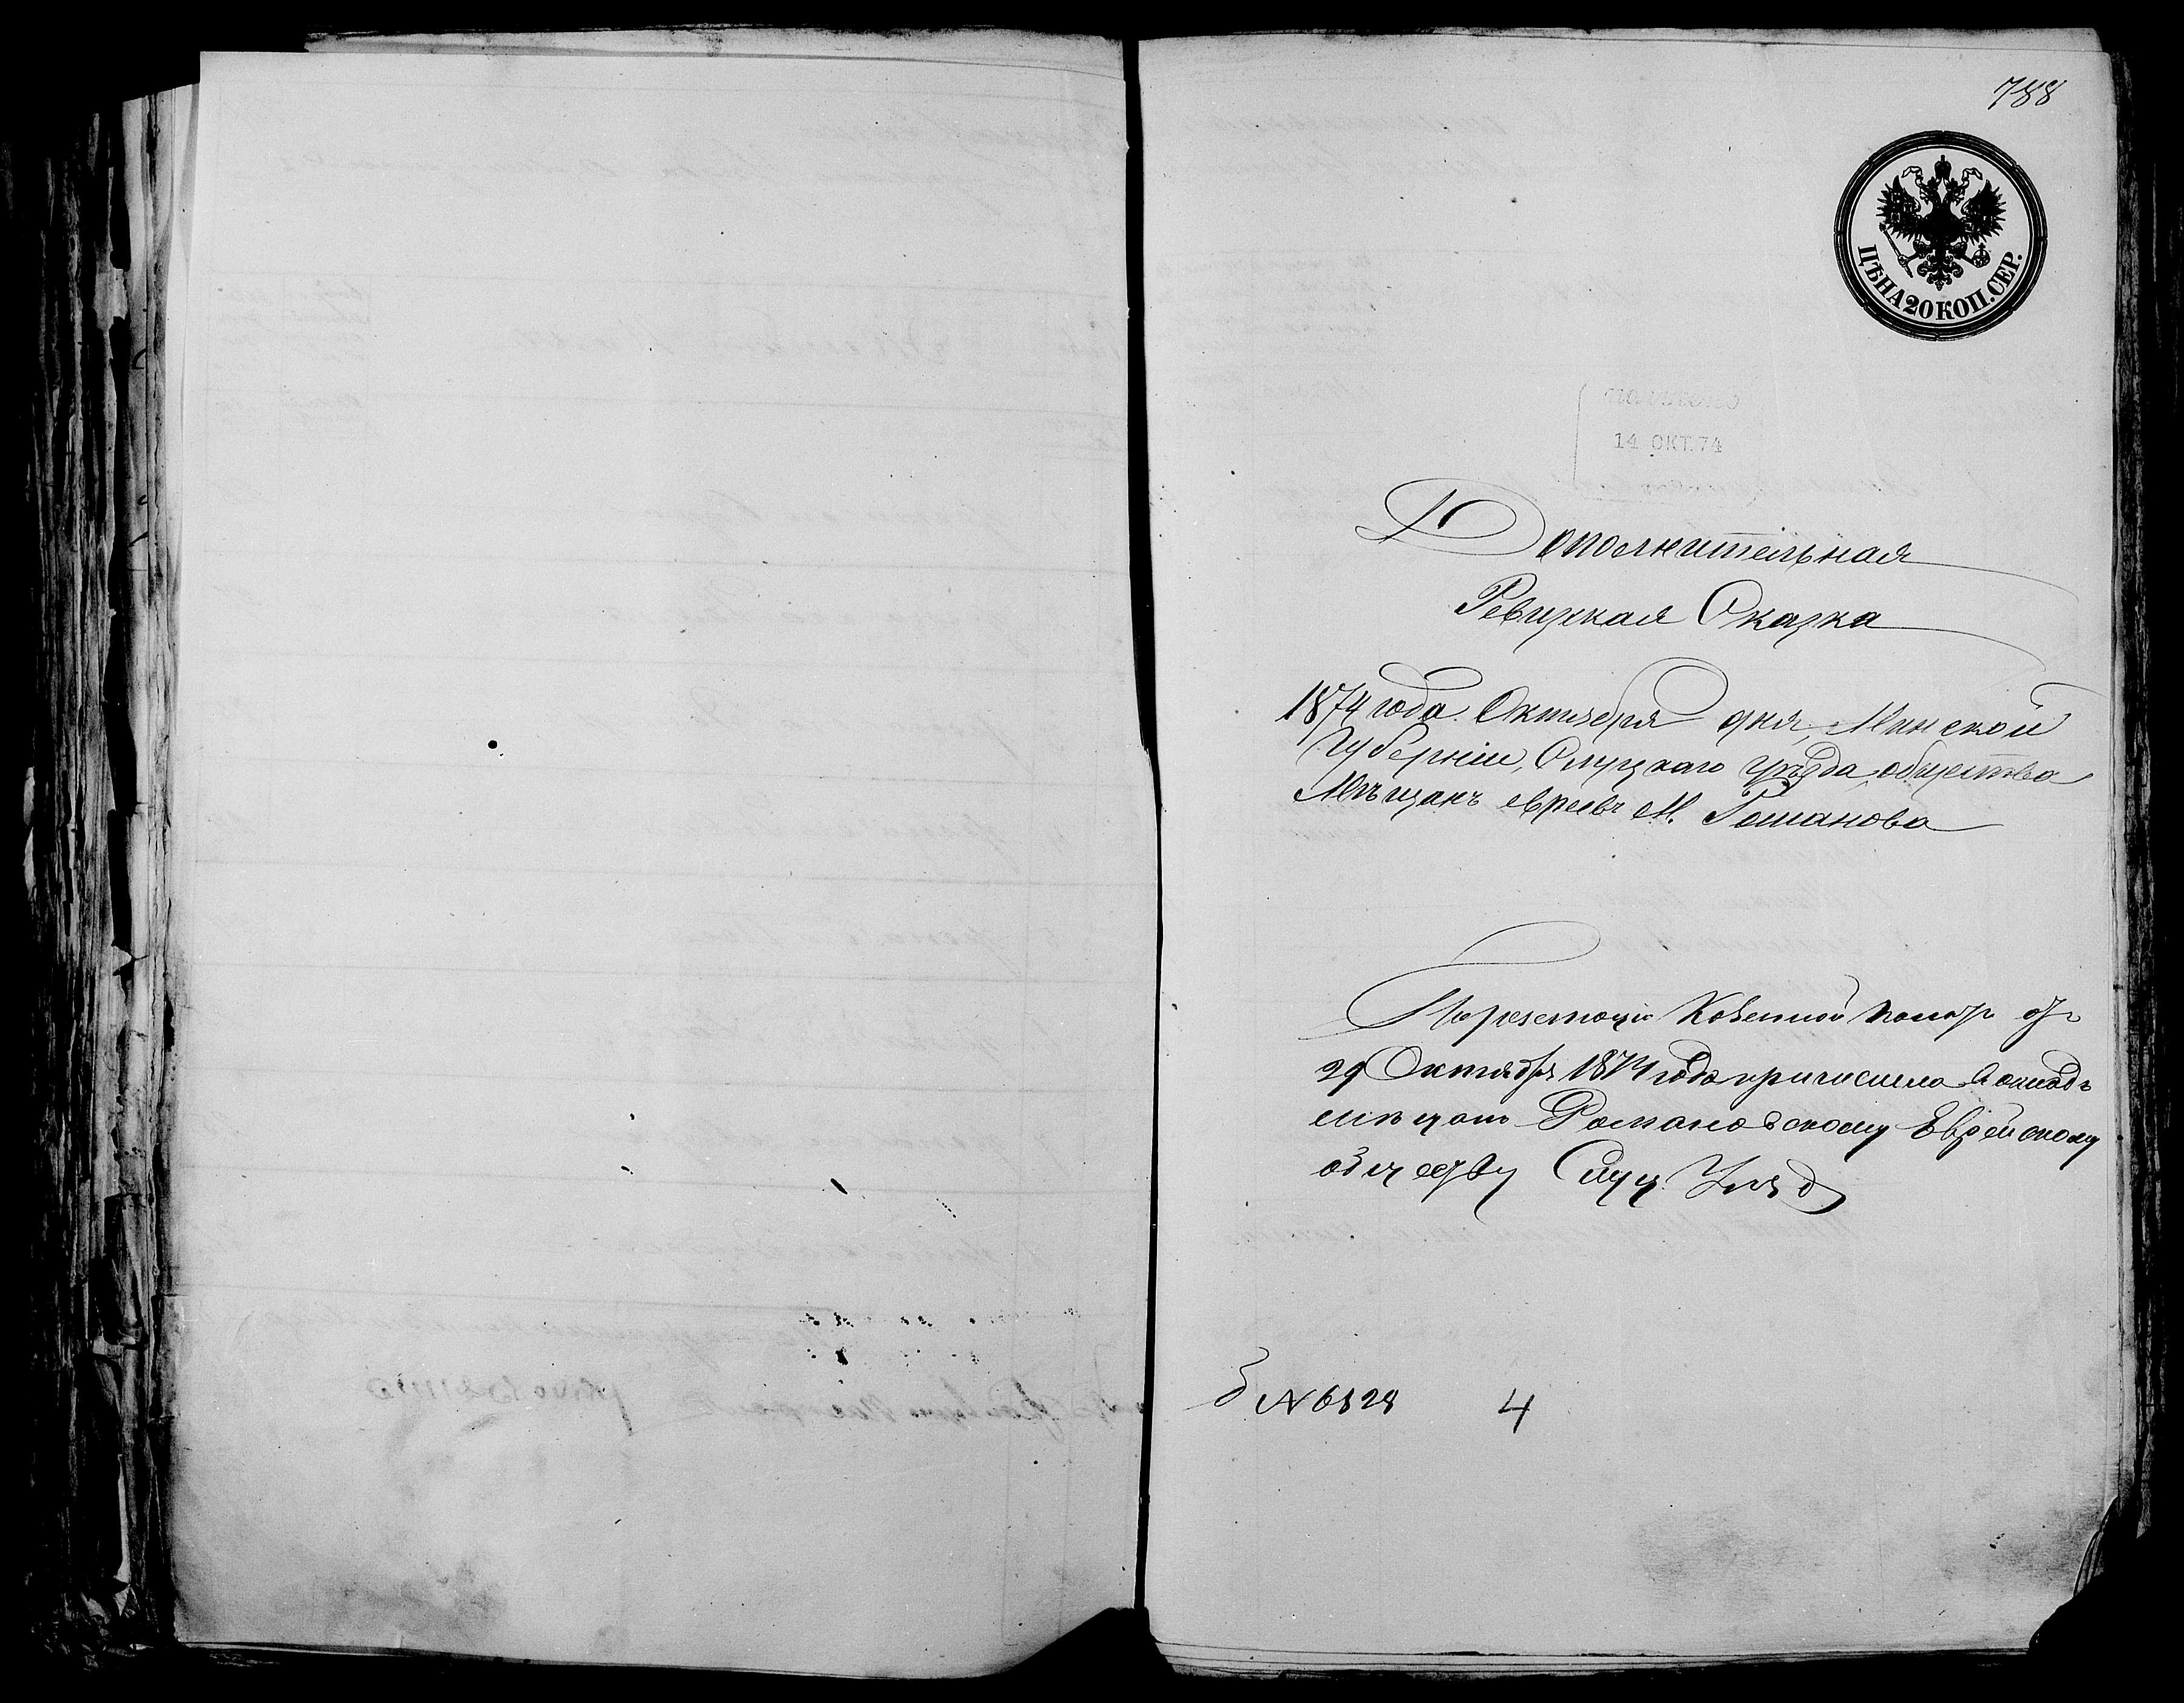 788
ЦѢНА 20 КОП. СЕР.
ПОЛУЧЕНО
14 ОКТ. 74
Дополнительная
Ревизская Сказка
1874 года Октября дня, Минской
Губерніи, Слуцкаго уѣзда общества
Мѣщанъ евреевъ М. Романова
Казенной Палаты отъ
29 Октября 1874 года причислена въ окладъ
мѣщан Романовскому Еврейскому
обществу Слуц. Уѣзд
№ 6828 4